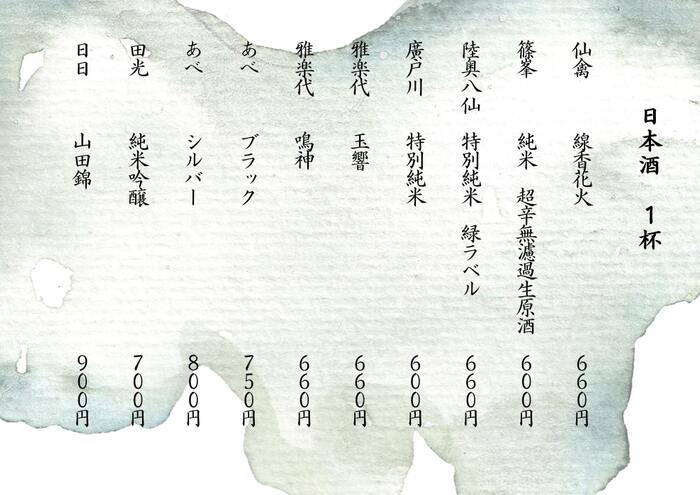 日本酒　1杯
仙禽　線香花火　660円
篠峯　純米　超辛無濾過生原酒　600円
陸奥八仙　特別純米　緑ラベル　660円
廣戸川　特別純米　600円
雅楽代　玉響　660円
雅楽代　鳴神　660円
あべ　ブラック　750円
あべ　シルバー　800円
田光　純米吟醸　700円
日日　山田錦　900円